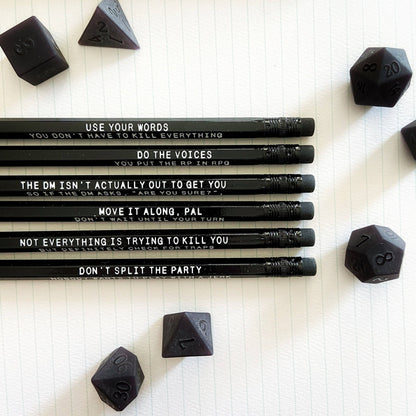 USE YOUR WORDS
YOU DON'T HAVE TO KILL EVERYTHING
DO THE VOICES
YOU PUT THE RP IN RPG
THE DM ISN'T ACTUALLY OUT TO GET YOU
SO IF THE DM ASKS, "ARE YOU SURE?",
MOVE IT ALONG, PAL
DON'T WAIT UNTIL YOUR TURN
NOT EVERYTHING IS TRYING TO KILL YOU
BUT DEFINITELY CHECK FOR TRAPS
DON'T SPLIT THE PARTY
8
20
1
8
1
30